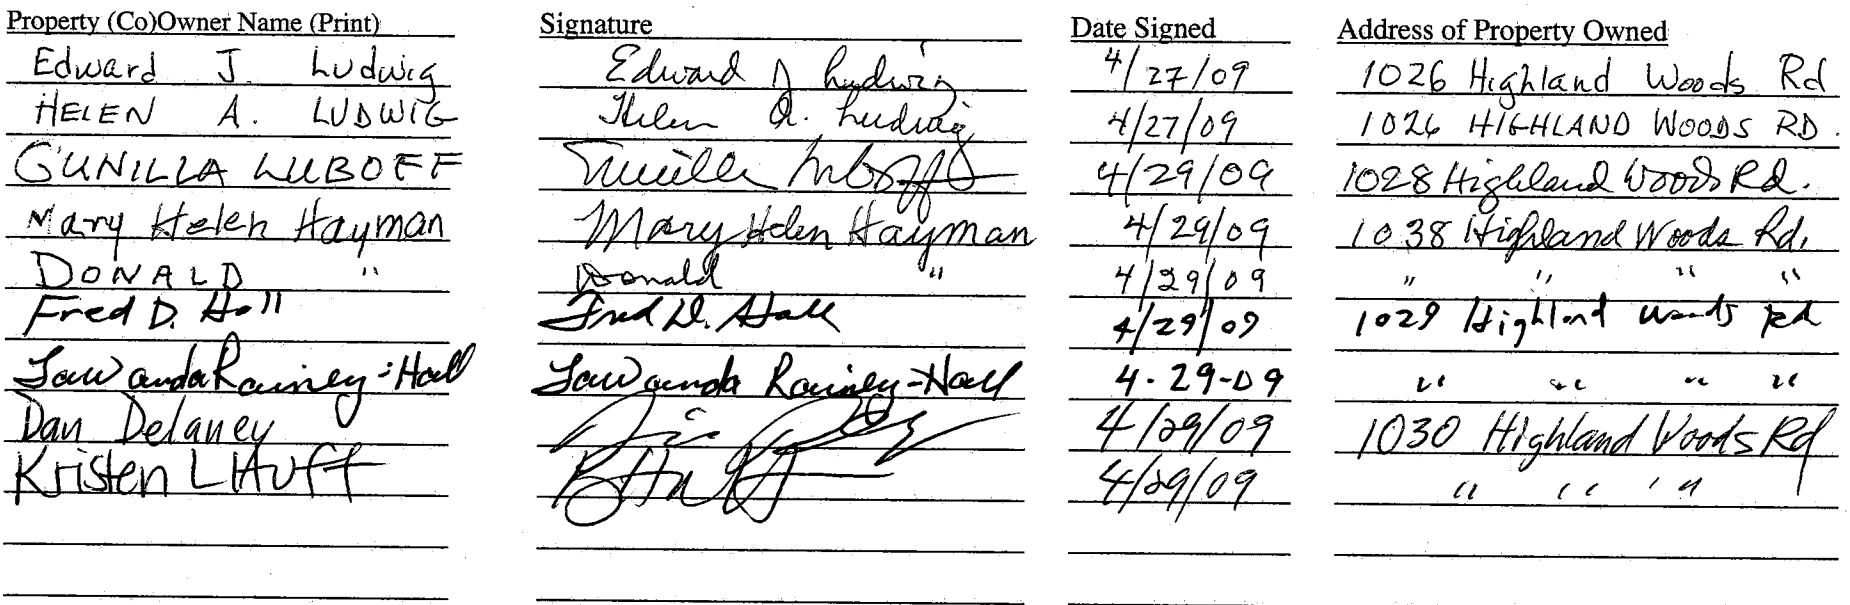 Property (Co)Owner Name (Print) Signature Date Signed Address of Property Owned
Edward J. Ludwig Edward J Ludwig 4/27/09 1026 Highland Woods Rd
HELEN A. LUDWIG Helen A. Ludwig 4/27/09 1026 HIGHLAND WOODS RD.
GUNILLA LUBOFF Gunilla Luboff 4/29/09 1028 Highland Woods Rd.
Mary Helen Hayman Mary Helen Hayman 4/29/09 1038 Highland Woods Rd.
DONALD " Donald " 4/29/09 " " " "
Fred D. Hall Fred D. Hall 4/29/09 1029 Highland Woods Rd
Lawanda Rainey-Hall Lawanda Rainey-Hall 4-29-09 " " " "
Dan Delaney 4/29/09 1030 Highland Woods Rd
Kristen L Huff 4/29/09 " " " "